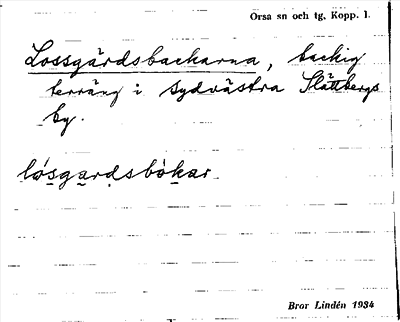 Orsa sn och tg, Kopp. l.
Lossgårdsbackarna, backig
terräng i sydvästra Slättbergs
by.
lósgardsbòkar.
Bror Lindén 1934